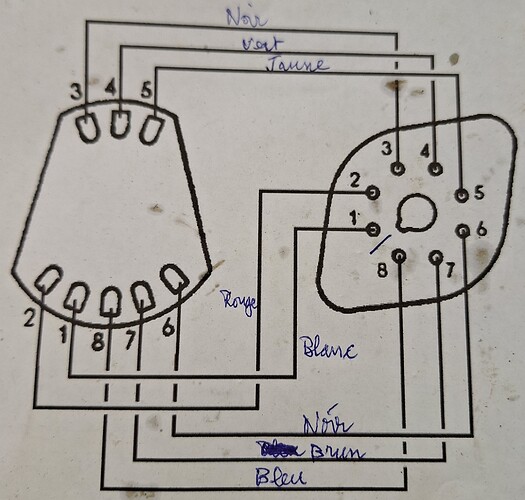 Noir
vert
Jaune
3 4 5
3 4
2 5
1 6
8 7
Rouge
2 1 8 7 6
Blanc
Noir
Brun
Bleu